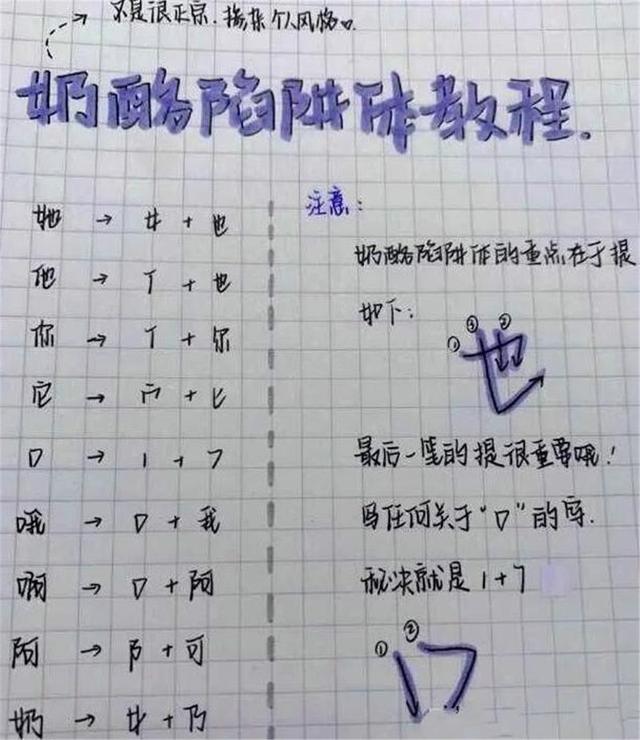 不是很正宗.掺杂个人风格。
奶酪陷阱体教程.
她 → 女 + 也
他 → 亻 + 也
你 → 亻 + 尔
它 → 宀 + 匕
口 → 1 + 7
哦 → 口 + 我
啊 → 口 + 阿
阿 → 阝 + 可
奶 → 女 + 乃
注意:
奶酪陷阱体的重点在于提
如下:
① ③ ②
也
最后一笔的提很重要哦!
写任何关于“口”的字.
秘诀就是 1 + 7
① ②
口